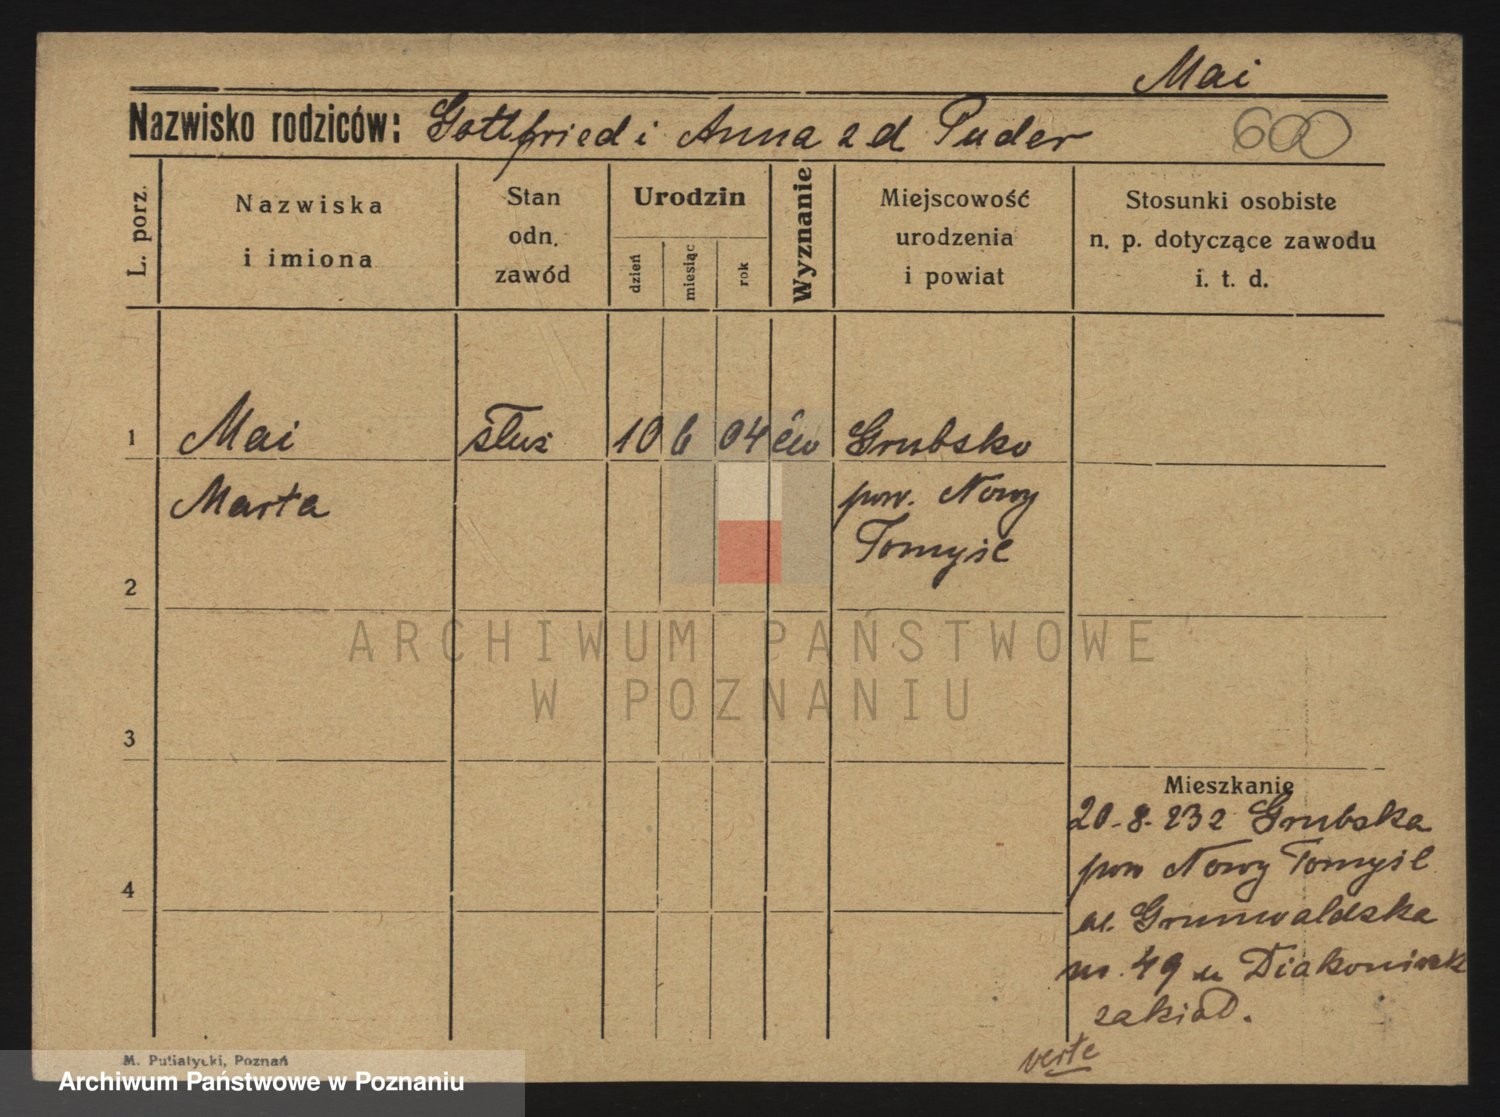 Mai
Nazwisko rodziców: Gottfried i Anna z d Puder
600
L. porz.
Nazwiska
i imiona
Stan
odn.
zawód
Urodzin
dzień
miesiąc
rok
Wyznanie
Miejscowość
urodzenia
i powiat
Stosunki osobiste
n. p. dotyczące zawodu
i. t. d.
1 Mai służ 10 6 04 Grubsko
Marta pow. Nowy
Tomyśl
2
ARCHIWUM PAŃSTWOWE
W POZNANIU
3
Mieszkanie
20-8-23 z Grubska
pow Nowy Tomyśl
4
ul. Grunwaldska
nr. 49 u Diakonisek
zakład.
verte
M. Putiatycki, Poznań
Archiwum Państwowe w Poznaniu